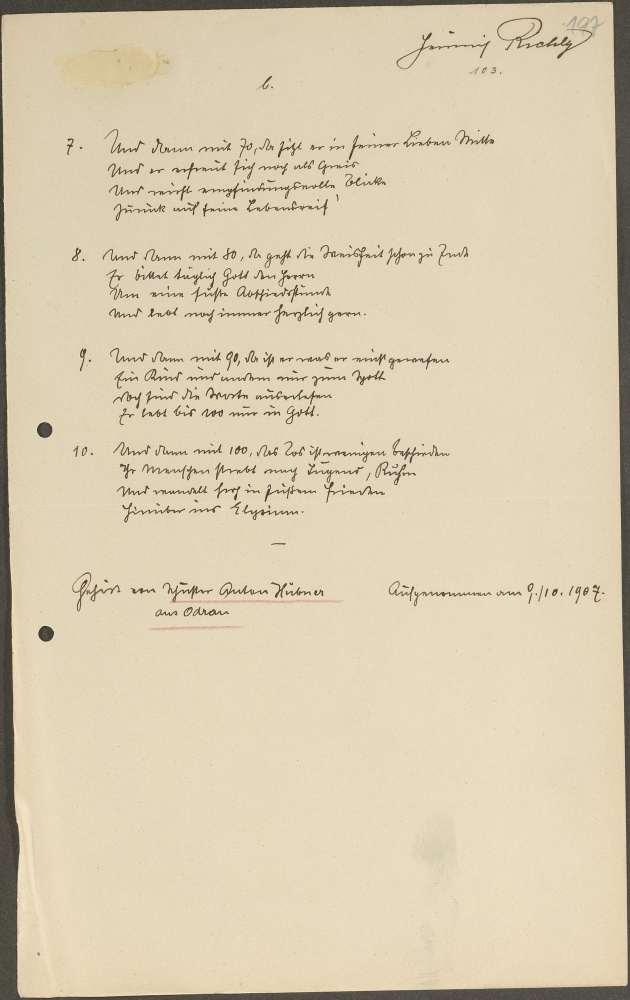 197
Heinrich Rschly
103.
b.
7. Und dann mit 70, da sitzt er in seiner Lieben Mitte
Und er erfreut sich noch als Greis
Und wirft empfindungsvolle Blicke
Zurück auf seine Lebensreis'
8. Und dann mit 80, da geht die Weisheit schon zu Ende
Er bittet täglich Gott den Herrn
Um eine süße Abschiedsstunde
Und lebt noch immer herzlich gern.
9. Und dann mit 90, da ist er was er einst gewesen
Ein Kind und andern nur zum Spott
Doch sind die Worte auserlesen
Er lebt bis 100 nur in Gott.
10. Und dann mit 100, das Los ist wenigen beschieden
Ihr Menschen strebt nach Tugend, Ruhm
Und wandelt hoch in süßem Frieden
Hinüber ins Elysium.
Gehört von Schuster Anton Hübner
aus Odrau
Aufgenommen am 9./10. 1907.